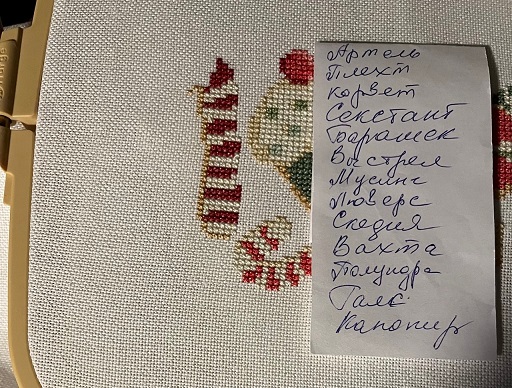 Артель
Плехт
корвет
Секстант
Барашек
Выстрел
Мусинг
Люверс
Скедия
Вахта
Полундра
Галс
Капонир